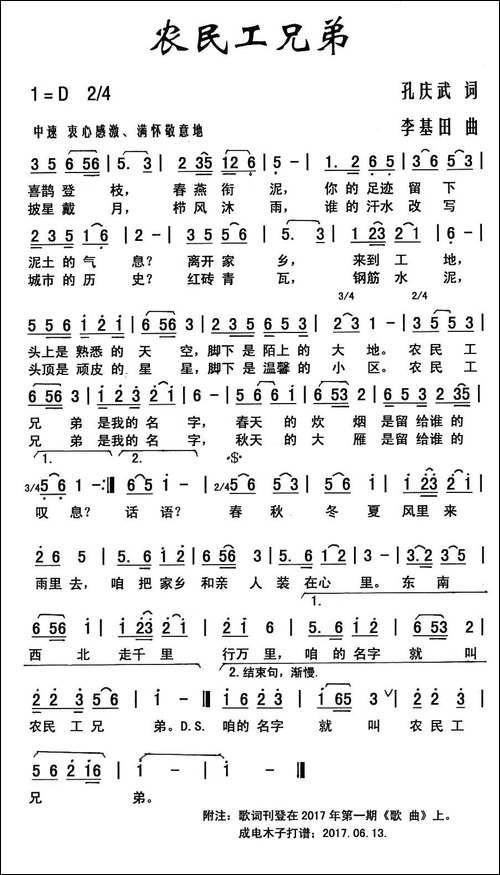 农民工兄弟
1=D 2/4
孔庆武 词
中速 衷心感激、满怀敬意地
李基田 曲
3 5 6 56 | 5. 3 | 2 35 12 6 | 5 - | 1. 2 6 5 | 3 6 5 3 |
喜鹊登 枝, 春燕衔 泥, 你的足迹留下
披星戴 月, 栉风沐 雨, 谁的汗水改写
2 3 5 1 6 | 2 - | 3 5 5 6 | 5. 3 | 2 3 2 1 | 6 - |
泥土的气 息? 离开家 乡, 来到工 地,
城市的历 史? 红砖青 瓦, 钢筋水 泥,
3/4 2/4
5 5 6 1 2 1 | 6 56 3 | 2 3 5 6 5 3 | 2 3 1 - | 1 5 5 3 |
头上是熟悉的天 空,脚下是陌上的大 地。 农民 工
头顶是顽皮的星 星,脚下是温馨的小 区。 农民 工
兄 弟 是我的名 字, 春天的 炊 烟是留给谁的
兄 弟 是我的名 字, 秋天的 大 雁是留给谁的
1. 2. 𝄋
叹 息? 话 语? 春 秋 冬 夏 风里来
雨里去, 咱 把家乡和亲 人 装在心 里。 东 南
1.
西 北 走千里 行万里, 咱 的名字 就 叫
2. 结束句,渐慢.
农民 工兄 弟。D.S. 咱的名字 就 叫 农民工
5 6 2 16 | 1 - | 1 - ‖
兄 弟。
附注：歌词刊登在2017年第一期《歌 曲》上。
成电木子打谱：2017.06.13.